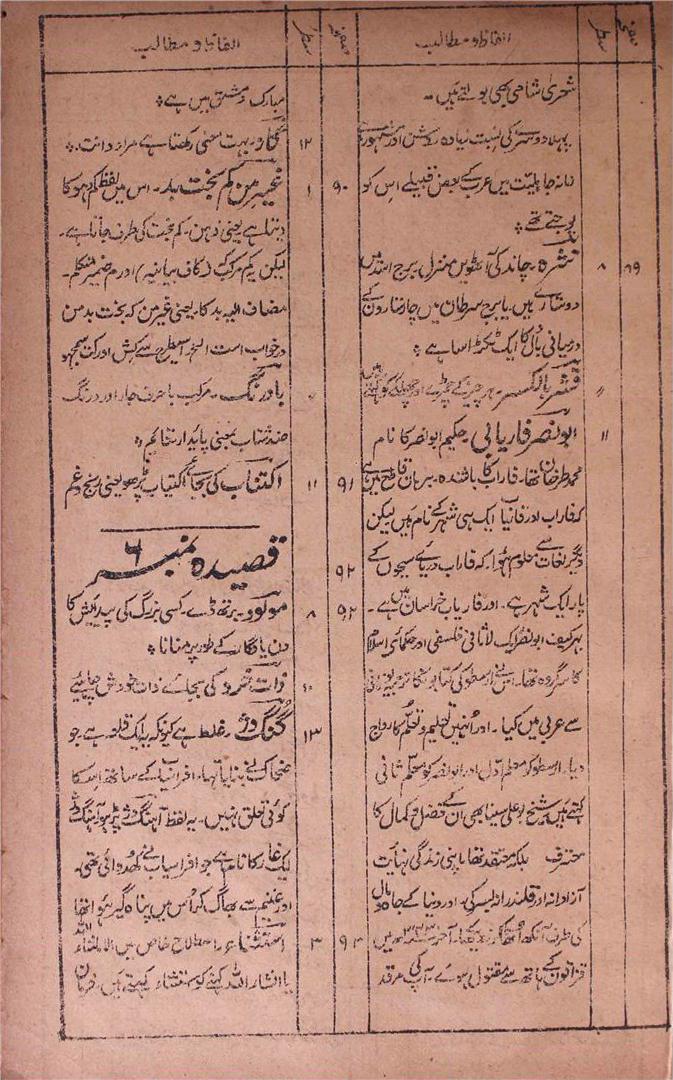 صفحہ سطر الفاظ و مطالب
شعریٰ شامی بھی بولتے ہیں۔
پہلا دوسرے کی نسبت زیادہ روشن اور مشہور ہے
زمانہ جاہلیت میں عرب کے بعض قبیلے اس کو
پوجتے تھے
۸۹ ۸ نثرہ۔ چاند کی آٹھویں منزل برج اسد میں
دو ستارے ہیں۔ یا برج سرطان میں چار ستاروں کے
درمیانی بال کا ایک ٹکڑا سا ہے
〃 قشر بالکسر۔ ہر چیز کے چمڑے اور چھلکے کو کہتے ہیں
۱۱ ابو نصر فاریابی۔ حکیم ابو نصر کا نام
محمد طرخان تھا۔ فاراب کا باشندہ۔ برہان قاطع میں ہے
کہ فاراب اور فاریاب ایک ہی شہر کے نام ہیں لیکن
دیگر لغات سے معلوم ہوا۔ کہ فاراب دریائے سیحوں کے
پار ایک شہر ہے۔ اور فاریاب خراسان میں ہے۔
بہرکیف ابو نصر ایک لاثانی فلسفی اور حکمائے اسلام
کا سرگروہ تھا۔ اس نے ارسطو کی کتابوں کا ترجمہ یونانی
سے عربی میں کیا۔ اور انہیں تعلیم و تعلم کا رواج
دیا۔ ارسطو کو معلم اول اور ابو نصر کو معلم ثانی
کہتے ہیں شیخ بو علی سینا بھی ان کے فضل و کمال کا
معترف بلکہ معتقد تھا۔ اپنی زندگی نہایت
آزادانہ اور قلندرانہ بسر کی۔ اور دنیا کے جاہ و مال
کی طرف آنکھ اٹھا کر نہ دیکھا۔ آخر میں
قزاقوں کے ہاتھ سے مقتول ہوئے۔ آپ کی مرقد
صفحہ سطر الفاظ و مطالب
مبارک دمشق میں ہے
۱۲ بہت معنی رکھتا ہے مراد دانت۔
۹۰ ۱ غیر من کم بخت بد۔ اس میں لفظ کم دھوکا
دیتا ہے یعنی ذہن۔ کم بخت کی طرف جاتا ہے۔
لیکن یہ مرکب (کاف بیانیہ) اور م ضمیر متکلم۔
مضاف الیہ بد کا۔ یعنی غیر من کہ بخت بد من
در خواب است الخ اسی طرح سے کش اور کت سمجھو
〃 بادرنگ۔ مرکب با حرف جار اور درنگ
ضد شتاب بمعنی پایدار
۹۱ ۱۱ اکتساب کی بجائے اکتیاب پڑھو یعنی رنج و غم
۹۲
قصیدہ نمبر ۶
۹۲ ۸ مولود برتھ ڈے۔ کسی بزرگ کی پیدائش کا
دن یادگار کے طور پر منانا
۱۰ کی بجائے ذات خودش چاہئے
۱۳ گنگ دژ۔ غلط ہے کیونکہ یہ ایک قلعہ ہے جو
ضحاک نے بنایا تھا۔ افراسیاب کے ساتھ اس کا
کوئی تعلق نہیں۔ یہ لفظ آہنگ دژ پڑھو آہنگ دژ
ایک غار کا نام ہے جو افراسیاب نے کھدوائی تھی۔
اور غنیم سے بھاگ کر اس میں پناہ گیر ہوا تھا
۹۳ ۳ استثنا۔ اصطلاح خاص میں الا ماشاء اللہ
یا انشاء اللہ کہنے کو استثناء کہتے ہیں۔